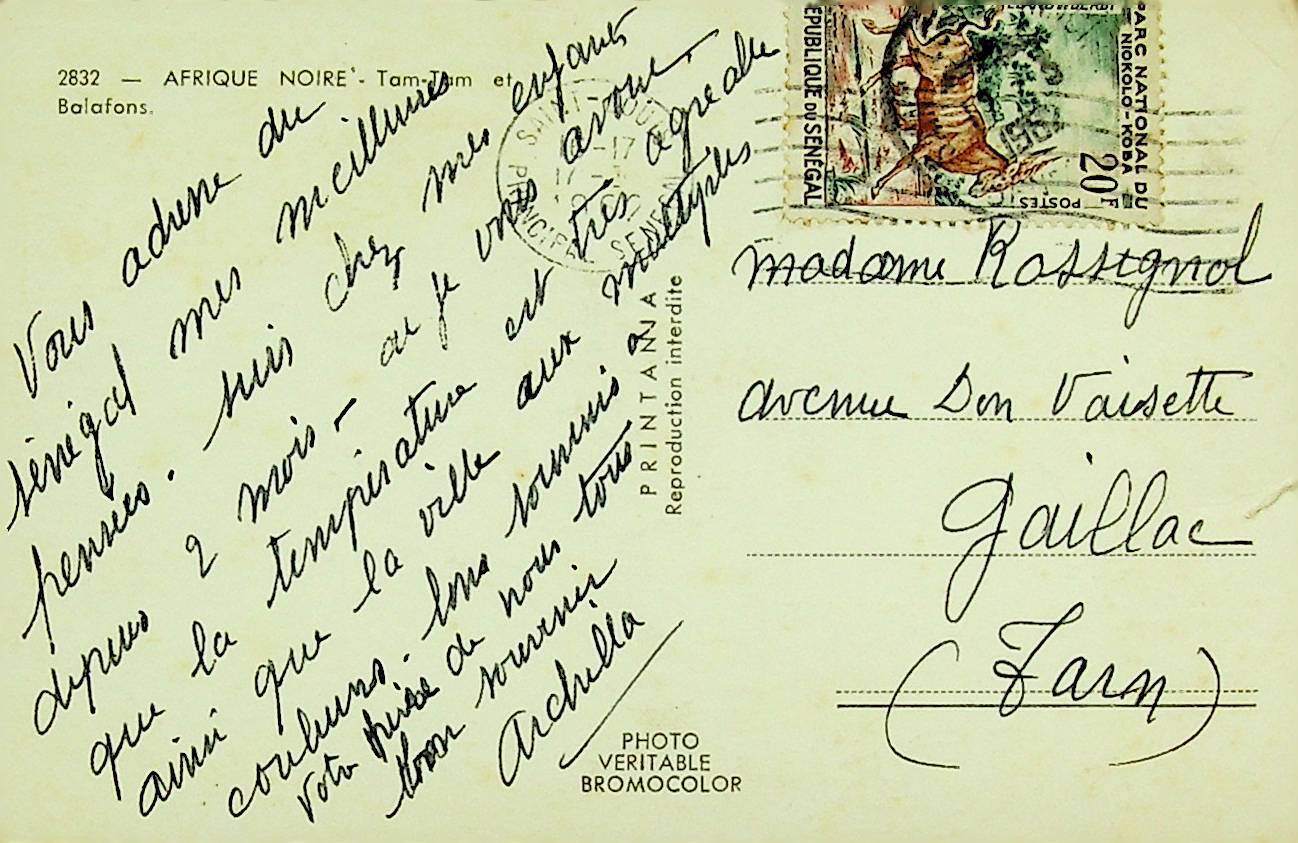 2832 — AFRIQUE NOIRE - Tam-Tam et
Balafons.
Vous adresse du
Sénégal mes meilleures
pensées. suis chez mes enfants
depuis 2 mois - où je vous avoue
que la température est très agréable
ainsi que la ville aux multiples
couleurs. tous soumis à
votre de nous tous
bon souvenir
Archilla
PRINTANIA
Reproduction interdite
PHOTO
VERITABLE
BROMOCOLOR
REPUBLIQUE DU SENEGAL
PARC NATIONAL DU
NIOKOLO-KOBA
20F
POSTES
SAINT
PRINCIPAL SENEGAL
madame Rossignol
avenue Don Vaisette
Gaillac
(Tarn)